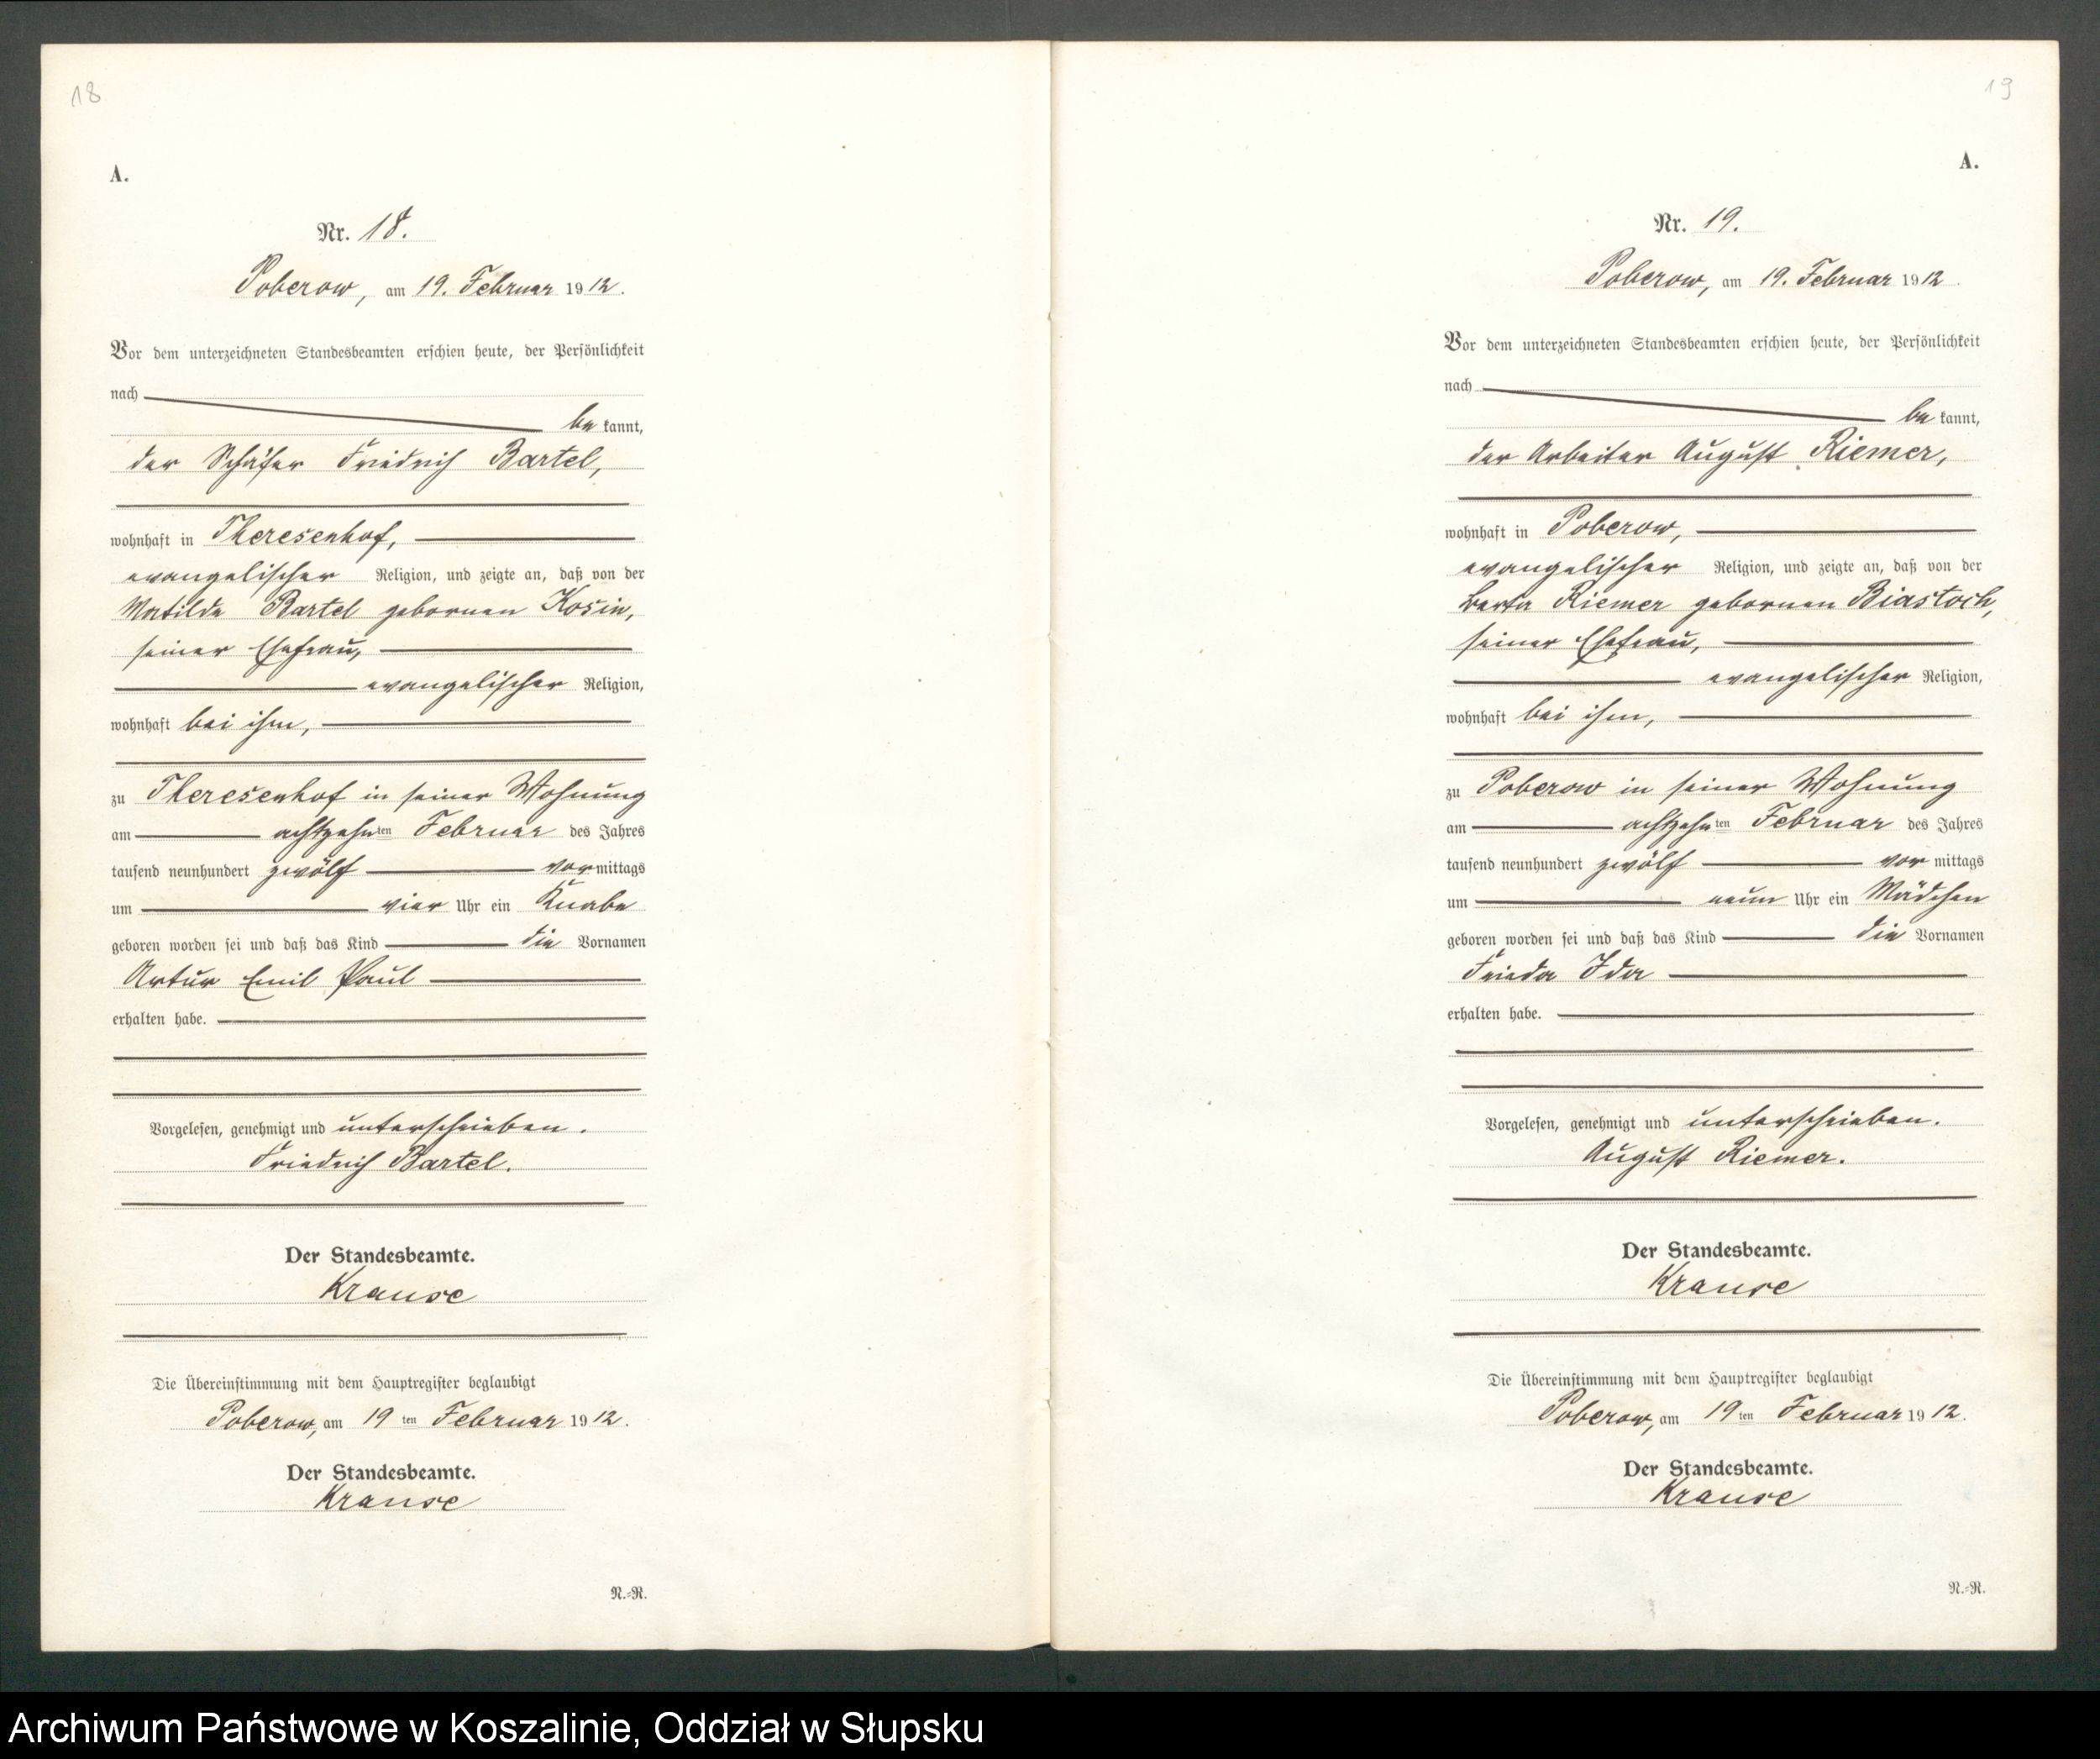 18
A.
Nr. 18.
Poberow, am 19. Februar 1912.
Vor dem unterzeichneten Standesbeamten erschien heute, der Persönlichkeit
nach
be kannt,
der Schäfer Friedrich Bartel,
wohnhaft in Theresenhof,
evangelischer Religion, und zeigte an, daß von der
Matilde Bartel gebornen Kosin,
seiner Ehefrau,
evangelischer Religion,
wohnhaft bei ihm,
zu Theresenhof in seiner Wohnung
am achtzehnten Februar des Jahres
tausend neunhundert zwölf vormittags
um vier Uhr ein Knabe
geboren worden sei und daß das Kind die Vornamen
Artur Emil Paul
erhalten habe.
Vorgelesen, genehmigt und unterschrieben.
Friedrich Bartel.
Der Standesbeamte.
Krause
Die Übereinstimmung mit dem Hauptregister beglaubigt
Poberow, am 19 ten Februar 1912.
Der Standesbeamte.
Krause
N.-R.
19
A.
Nr. 19.
Poberow, am 19. Februar 1912.
Vor dem unterzeichneten Standesbeamten erschien heute, der Persönlichkeit
nach
be kannt,
der Arbeiter August Riemer,
wohnhaft in Poberow,
evangelischer Religion, und zeigte an, daß von der
Berta Riemer gebornen Biastoch,
seiner Ehefrau,
evangelischer Religion,
wohnhaft bei ihm,
zu Poberow in seiner Wohnung
am achtzehnten Februar des Jahres
tausend neunhundert zwölf vor mittags
um neun Uhr ein Mädchen
geboren worden sei und daß das Kind die Vornamen
Frieda Ida
erhalten habe.
Vorgelesen, genehmigt und unterschrieben.
August Riemer.
Der Standesbeamte.
Krause
Die Übereinstimmung mit dem Hauptregister beglaubigt
Poberow, am 19 ten Februar 1912.
Der Standesbeamte.
Krause
N.-R.
Archiwum Państwowe w Koszalinie, Oddział w Słupsku